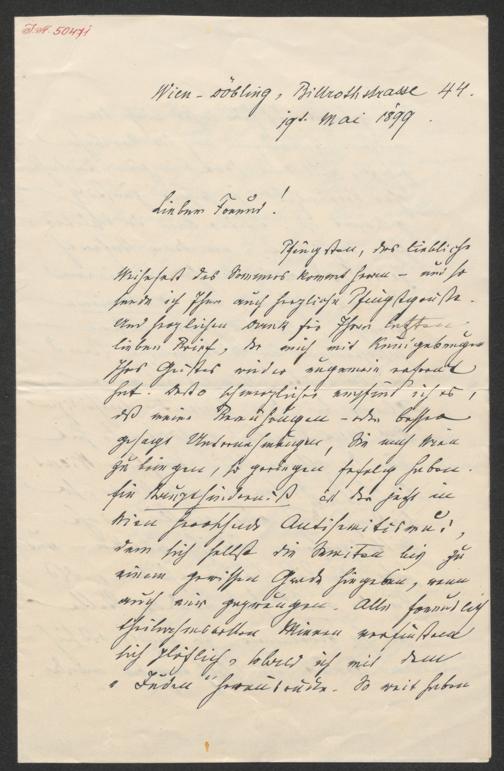 I.N. 50471
Wien-Döbling, Billrothstrasse 44.
19t. Mai 1899.
Lieber Freund!
Pfingsten, das liebliche
Weihefest des Sommers kommt heran – und so
sende ich Ihnen auch herzliche Pfingstgrüße.
Und herzlichen Dank für Ihren letzten
lieben Brief, der mich mit Kundgebungen
Ihres Geistes wieder ungemein erfreut
hat. Desto schmerzlicher empfind' ich es,
daß meine Bemühungen – oder besser
gesagt Unternehmungen, Sie nach Wien
zu bringen, so geringen Erfolg haben.
Ein Haupthinderniß ist der jetzt in
Wien herrschende Antisemitismus,
dem sich selbst die Semiten bis zu
einem gewissen Grade hingeben, wenn
auch nur gezwungen. Alle freundlich
theilnahmsvollen Mienen verfinstern
sich plötzlich, sobald ich mit dem
"Juden" herausrücke. So weit haben